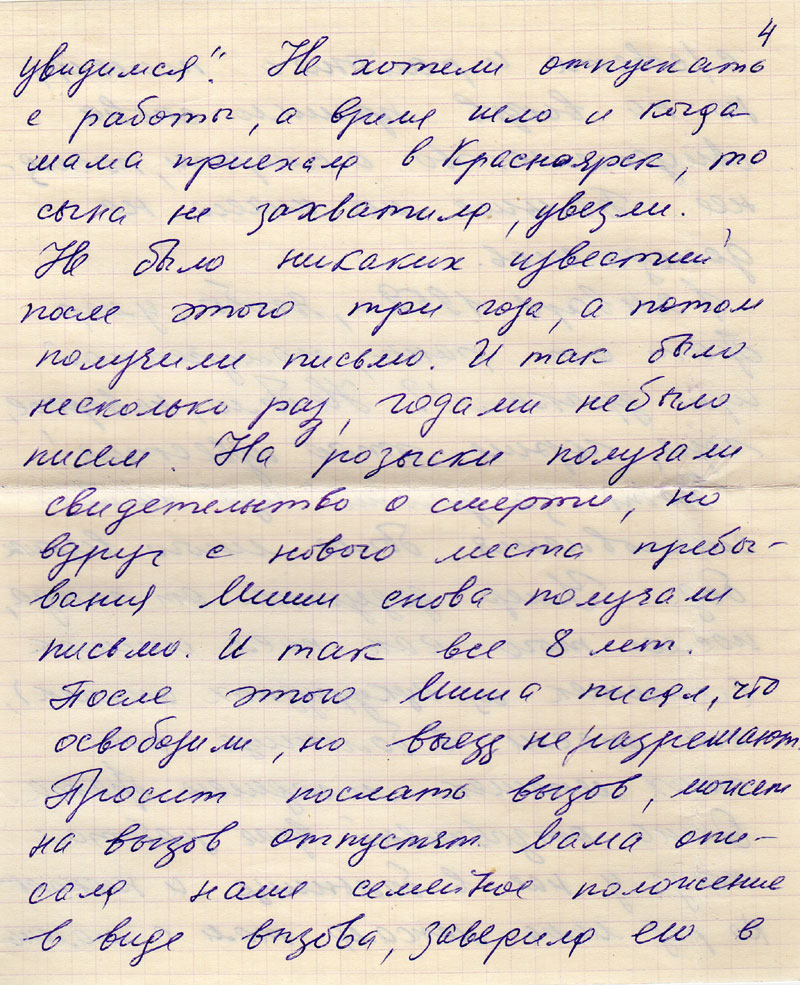 4
увидимся". Не хотели отпускать
с работы, а время шло и когда
мама приехала в Красноярск, то
сына не захватила, увезли.
Не было никаких известий
после этого три года, а потом
получили письмо. И так было
несколько раз, годами не было
писем. На розыски получали
свидетельство о смерти, но
вдруг с нового места пребы-
вания Миши снова получали
письмо. И так все 8 лет.
После этого Миша писал, что
освободили, но выезд не разрешают.
Просит послать вызов, может
на вызов отпустят. Мама опи-
сала наше семейное положение
в виде вызова, заверила его в